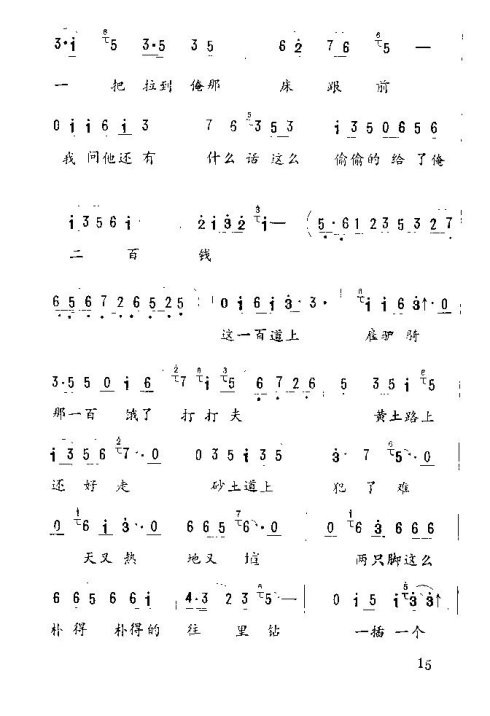 3·i 6 5 3·5 3 5 6 2 7 6 6 5 —
一 把 拉到 俺那 床 跟 前
0 i i 6 i 3 7 6 3 5 3 i 3 5 0 6 5 6
我 问 他 还 有 什么 话 这么 偷偷的 给 了 俺
i 3 5 6 i 2·i 3·2 3 i — (5·6 1 2 3 5 3 2 7
二 百 钱
6 5 6 7 2 6 5 2 5 : 0 i 6 i 3·3· 6 i i 6 3·0
这一百道上 雇驴 骑
3·5 5 0 i 6 2 7 6 i 3 5 6·7 2 6 5 3 5 i 6 5
那一百 饿了 打 打 夫 黄土路上
i 3 5 6 2 7·0 0 3 5 i 3 5 3·7 6 5·0
还 好 走 砂土道上 犯 了 难
0 1 6 i 3·0 6 6 5 7 6·0 0 1 6 3 6 6 6
天又热 地又 喧 两只脚这么
6 6 5 6 6 i 4·3 2 3 6 5 — 0 i 5 i 3 3
朴得 朴得的 往 里 钻 一插 一个
15